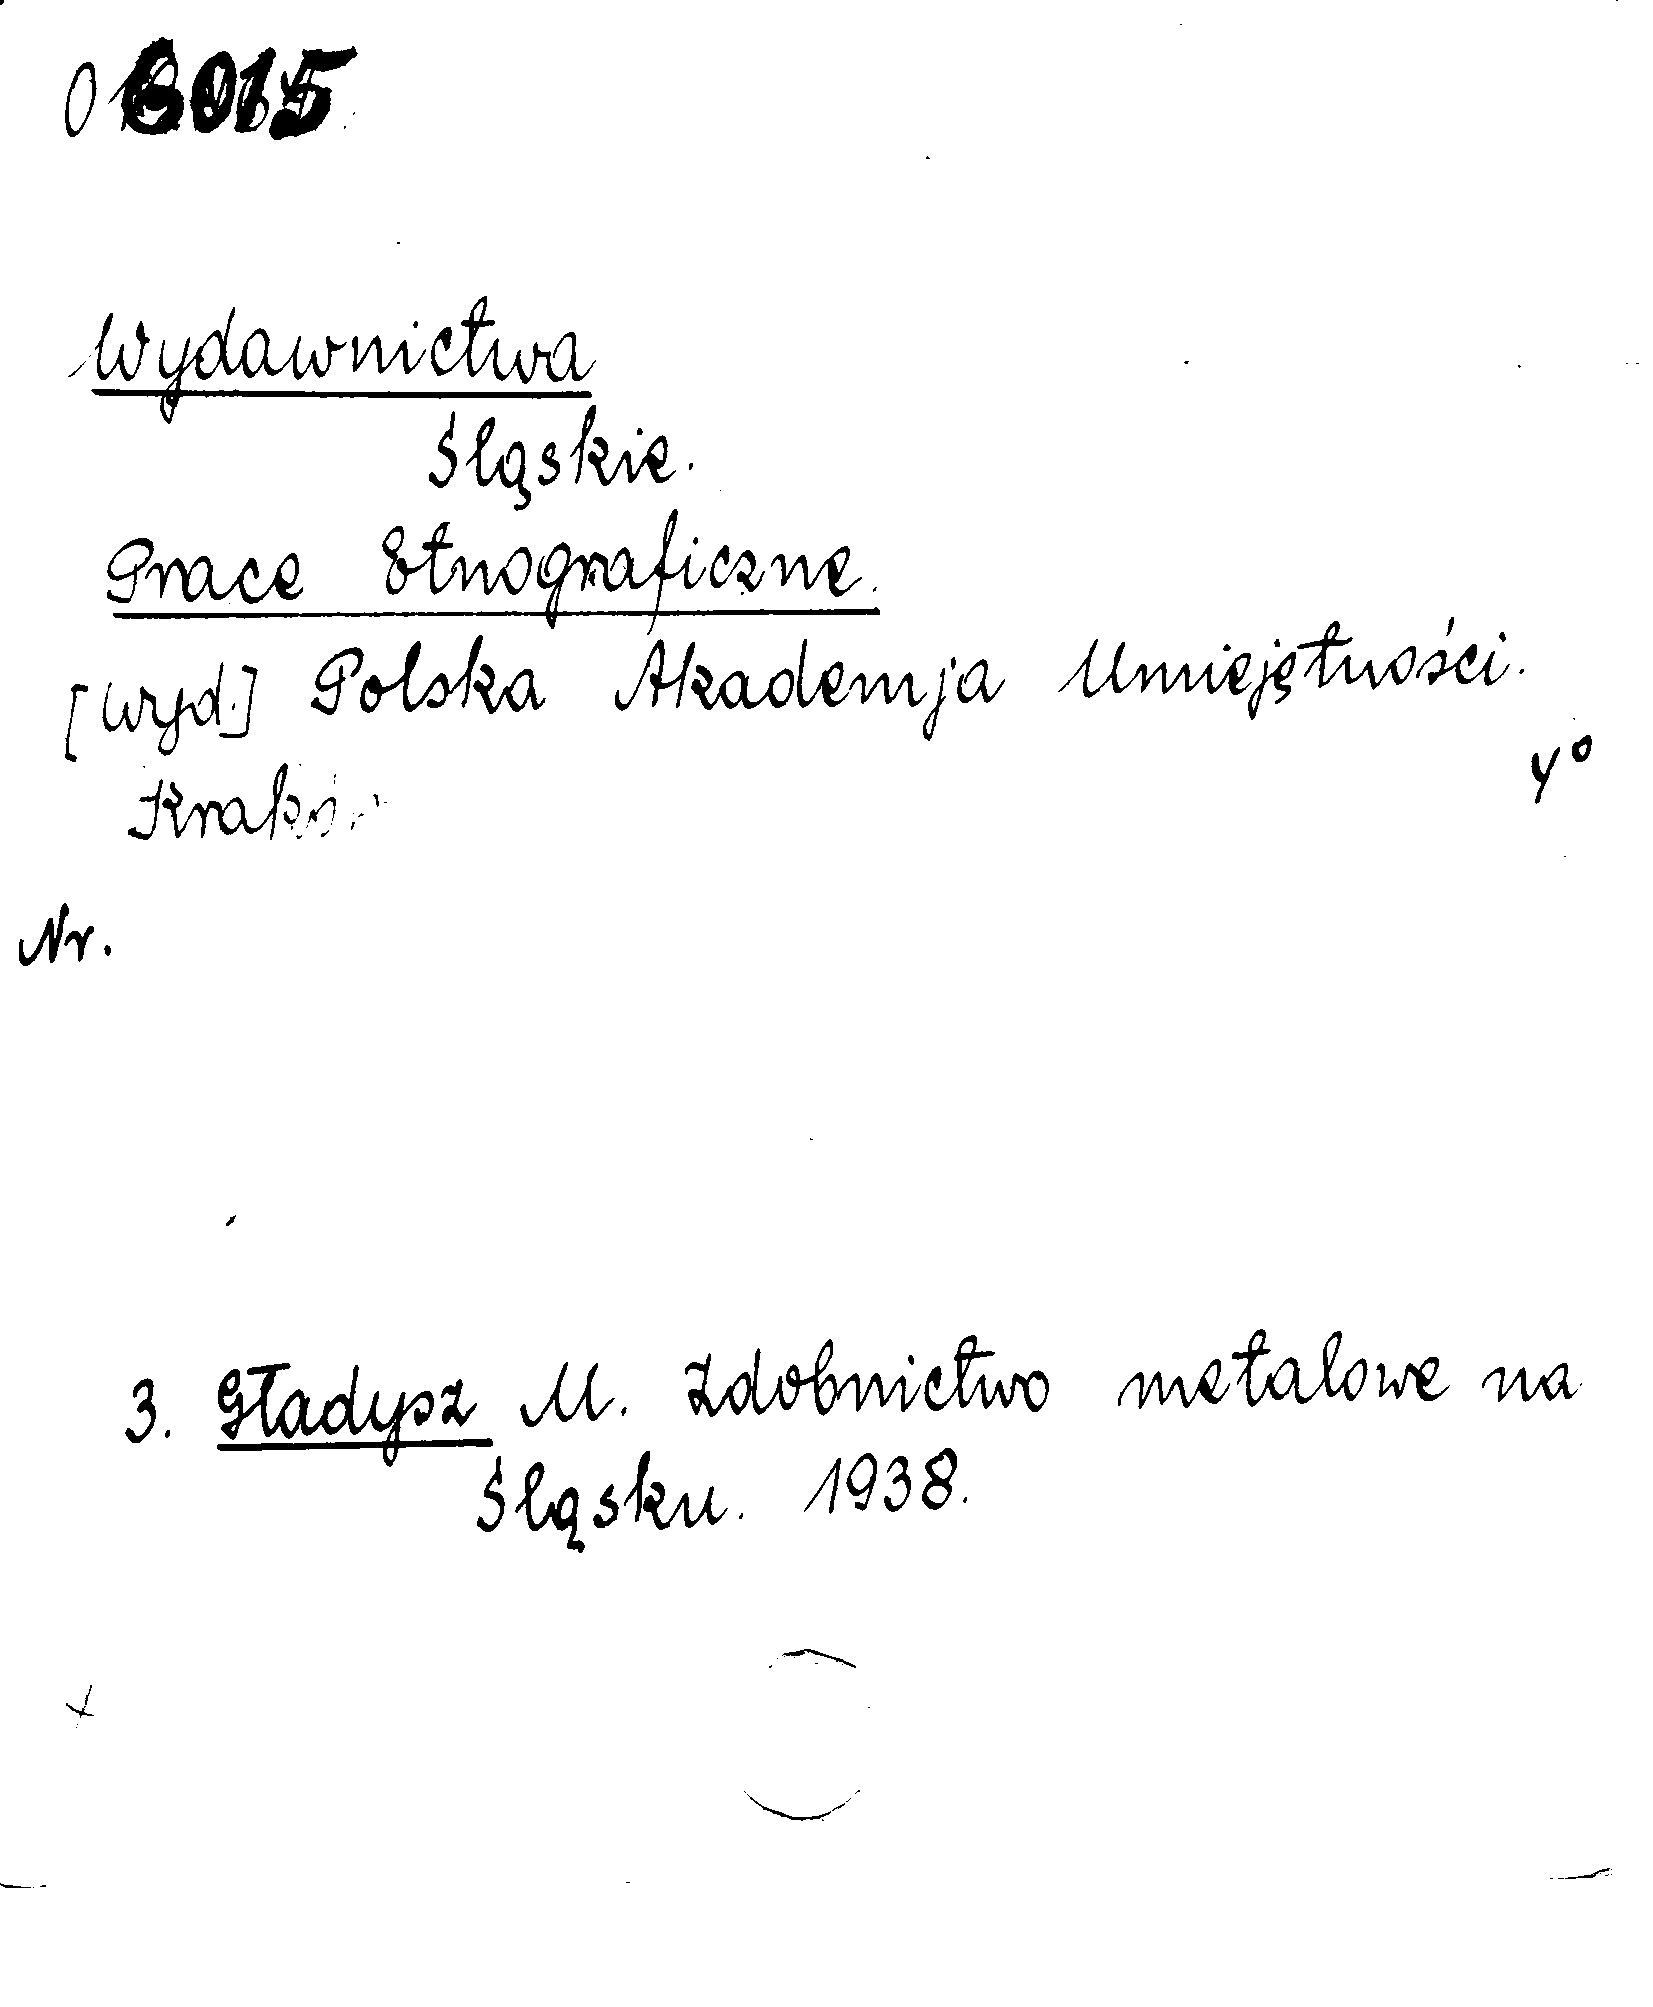 6015
Wydawnictwa
Śląskie.
Prace Etnograficzne.
[wyd.] Polska Akademja Umiejętności.
4°
Nr.
3. Gładysz M. Zdobnictwo metalowe na
Śląsku. 1938.